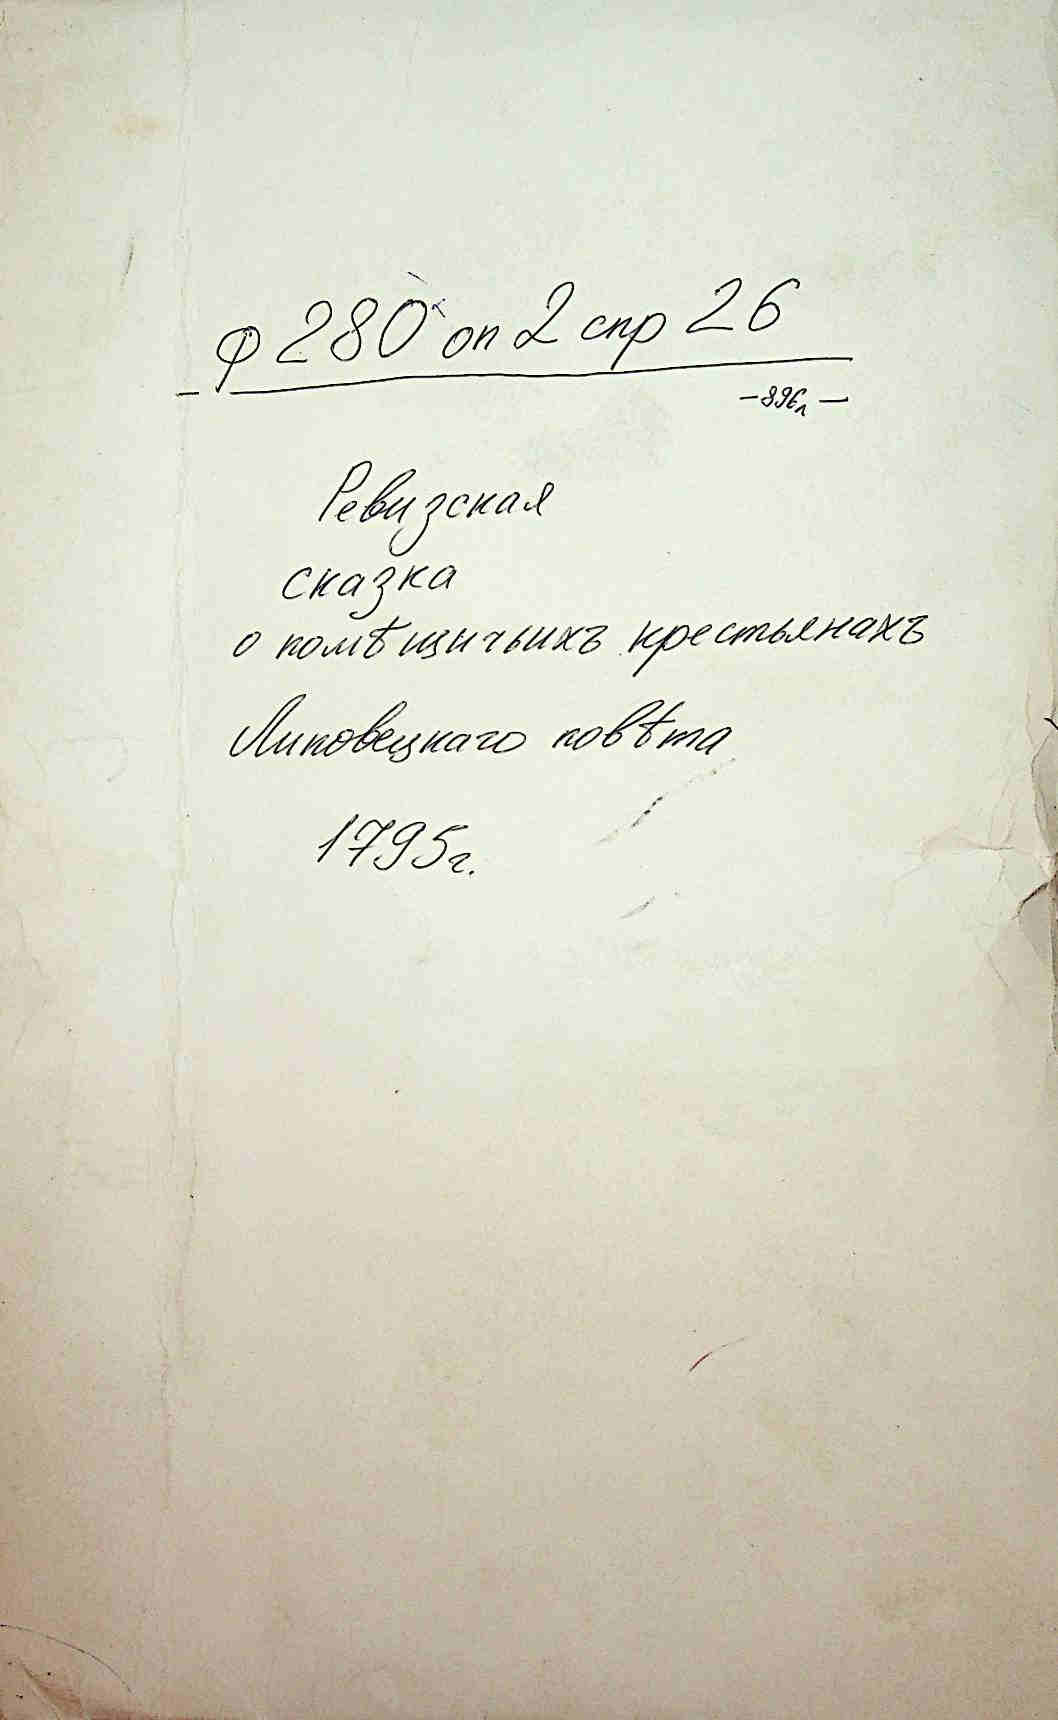 ф 280 оп 2 спр 26
– 896л –
Ревизская
сказка
о помѣщичьихъ крестьянахъ
Липовецкаго повѣта
1795г.